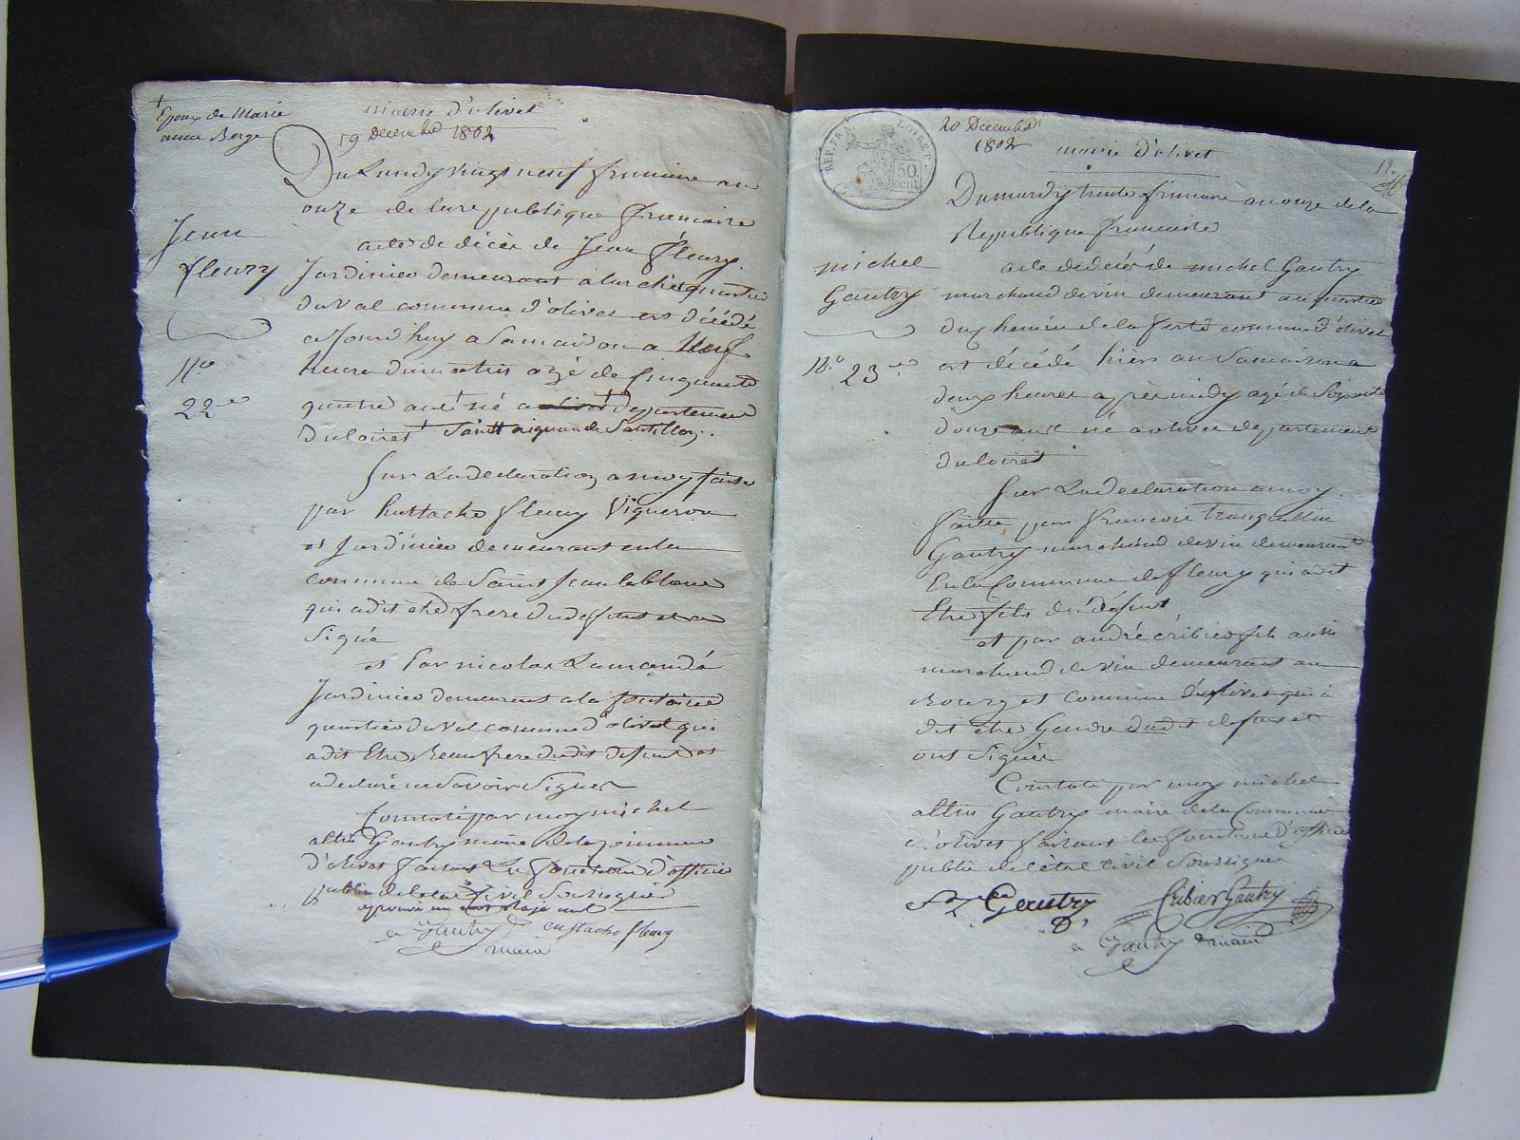 +
Epoux de Marie
anne Berge
mairie d'olivet
19 Decembre 1802
Du Lundy vingt neuf frimaire an
onze de la republique francaise
acte de décès de Jean fleury
Jean
fleury
Jardinier demeurant a quartier
du val commune d'olivet est décédé
ajourd'huy a sa maison a Neuf
11e
22e
heure du matin agé de Cinquante
quatre ans né a departement
du loiret Saint aignan
Sur La declaration a moy faite
par Eustache fleury Vigneron
et Jardinier demeurant en la
commune de Saint Jean le blanc
qui a dit etre frere du defunt et a
Signé
et Par nicolas Lamandé
Jardinier demeurant a la fontaine
quartier du val commune d'olivet qui
a dit Etre Beaufrere dudit defunt et
a declaré ne Savoir Signer
Constaté par moy michel
altin Gautry maire de la Commune
d'olivet faisant Les fonctions d'officier
public de letat Civil Soussigné
aprouvé un mot
Gautry eustache fleury
maire
REP. FRA. LOIRET
50
cent
20 Decembre
1802
mairie d'olivet
12
Du mardy trente frimaire an onze de la
Republique francaise
michel
Gautry
acte de décès de michel Gautry
marchand de vin demeurant au quartier
du chemin de la ferté commune d'olivet
18e 23e
est décédé hier en Sa maison a
deux heures après midy agé de Soixante
douze ans né a olivet departement
du loiret
Sur La declaration a moy
faitte par francois tranquillin
Gautry marchand de vin demeurant
En la Commune de fleury qui a dit
Etre fils du défunt
et par andré cribier fils aussi
marchand de vin demeurant au
Bourg et commune d'olivet qui a
dit etre Gendre dudit defunt et
ont Signé
Constaté par moy michel
altin Gautry maire de la Commune
d'olivet faisant les fonctions d'officier
public de l'état Civil Soussigné
Gautry Cribier Gautry
Gautry maire